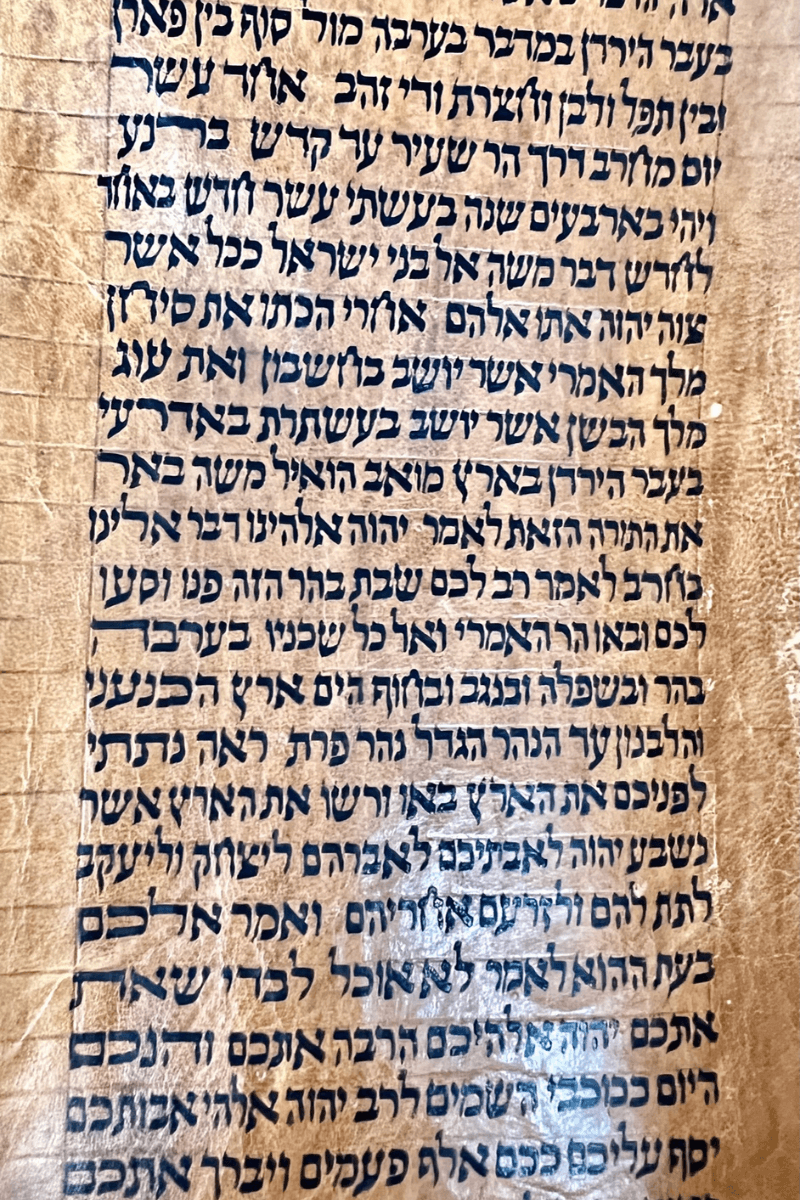 בעבר הירדן במדבר בערבה מול סוף בין פארן
ובין תפל ולבן וחצרת ודי זהב אחד עשר
יום מחרב דרך הר שעיר עד קדש ברנע
ויהי בארבעים שנה בעשתי עשר חדש באחד
לחדש דבר משה אל בני ישראל ככל אשר
צוה יהוה אתו אלהם אחרי הכתו את סיחן
מלך האמרי אשר יושב בחשבון ואת עוג
מלך הבשן אשר יושב בעשתרת באדרעי
בעבר הירדן בארץ מואב הואיל משה באר
את התורה הזאת לאמר יהוה אלהינו דבר אלינו
בחרב לאמר רב לכם שבת בהר הזה פנו וסעו
לכם ובאו הר האמרי ואל כל שכניו בערבה
בהר ובשפלה ובנגב ובחוף הים ארץ הכנעני
והלבנון עד הנהר הגדל נהר פרת ראה נתתי
לפניכם את הארץ באו ורשו את הארץ אשר
נשבע יהוה לאבתיכם לאברהם ליצחק וליעקב
לתת להם ולזרעם אחריהם ואמר אלכם
בעת ההוא לאמר לא אוכל לבדי שאת
אתכם יהוה אלהיכם הרבה אתכם והנכם
היום ככוכבי השמים לרב יהוה אלהי אבותכם
יסף עליכם ככם אלף פעמים ויברך אתכם